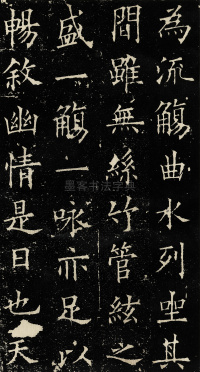 為流觴曲水列坐其
間雖無絲竹管絃之
盛一觴一咏亦足以
暢敘幽情是日也天
墨客书法字典